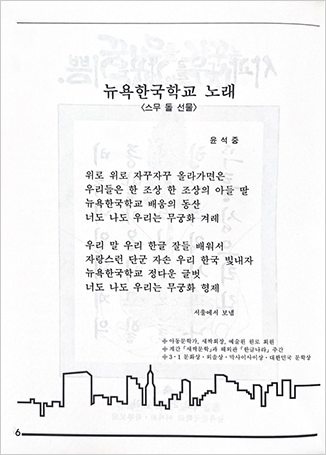 뉴욕한국학교 노래
<스무 돌 선물>
윤 석 중
위로 위로 자꾸자꾸 올라가면은
우리들은 한 조상 한 조상의 아들 딸
뉴욕한국학교 배움의 동산
너도 나도 우리는 무궁화 겨레
우리 말 우리 한글 잘들 배워서
자랑스런 단군 자손 우리 한국 빛내자
뉴욕한국학교 정다운 글벗
너도 나도 우리는 무궁화 형제
서울에서 보냄
아동문학가, 새싹회장, 예술원 원로 회원
계간 『새싹문학』과 해외판 『한글나라』 주간
3·1 문화상·외솔상·막사이사이상·대한민국 문학상
6